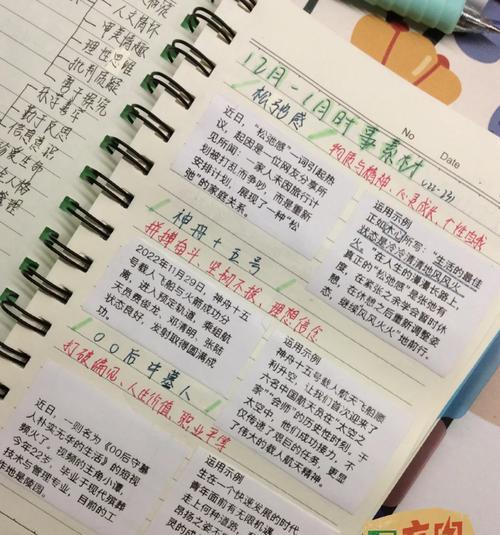 人文情怀
审美情趣
理性思维
批判质疑
勇于探究
乐学善学
勤于反思
信息意识
珍爱生命
No
Date
12月-1月时事素材 (22-23)
松弛感
物质与精神、心灵成长、个性自我
近日，“松弛感”一词引起热
议，起因是一位网友分享所
见所闻：一家人未因旅行计
划被打乱而争吵，而是重新
安排计划，展现了一种“松
弛”的家庭关系。
运用示例
正如木心所写：“生活的最佳
状态是冷冷清清地风风火
火。”在人生的漫漫长路上，
真正的“松弛感”是张弛有
度，在紧张之余来会暂时休
息，在休憩之后重新调整姿
态，继续风风火火”地前行。
神舟十五号
拼搏奋斗、坚韧不拔、理想信念
2022年11月29日，神舟十五
号载人飞船与火箭成功分
离，进入预定轨道，乘组航
天员费俊龙、邓清明、张陆
状态良好，发射取得圆满成
功。
运用示例
神舟十五号载人航天飞船顺
利升空，让我们首次迎来了
六名中国航天员在“太空之
家”会师”的历史性时刻，于
太空中，他们成功接力，不
仅传递了艰巨的任务，更显
了伟大的载人航天精神。
00后守墓人
打破偏见、人生价值、职业平等
近日，一则名为《00后守墓
人朴实无华的生活》的短视
频火了，视频的主角小谭，
今年22岁，毕业于现代殡葬
技术与管理专业，目前的工
作地是陵园。
运用示例
生在一个快速发展的时代
青年面前有无限机遇
走上何种道路，有
昂扬之姿不
灵的成